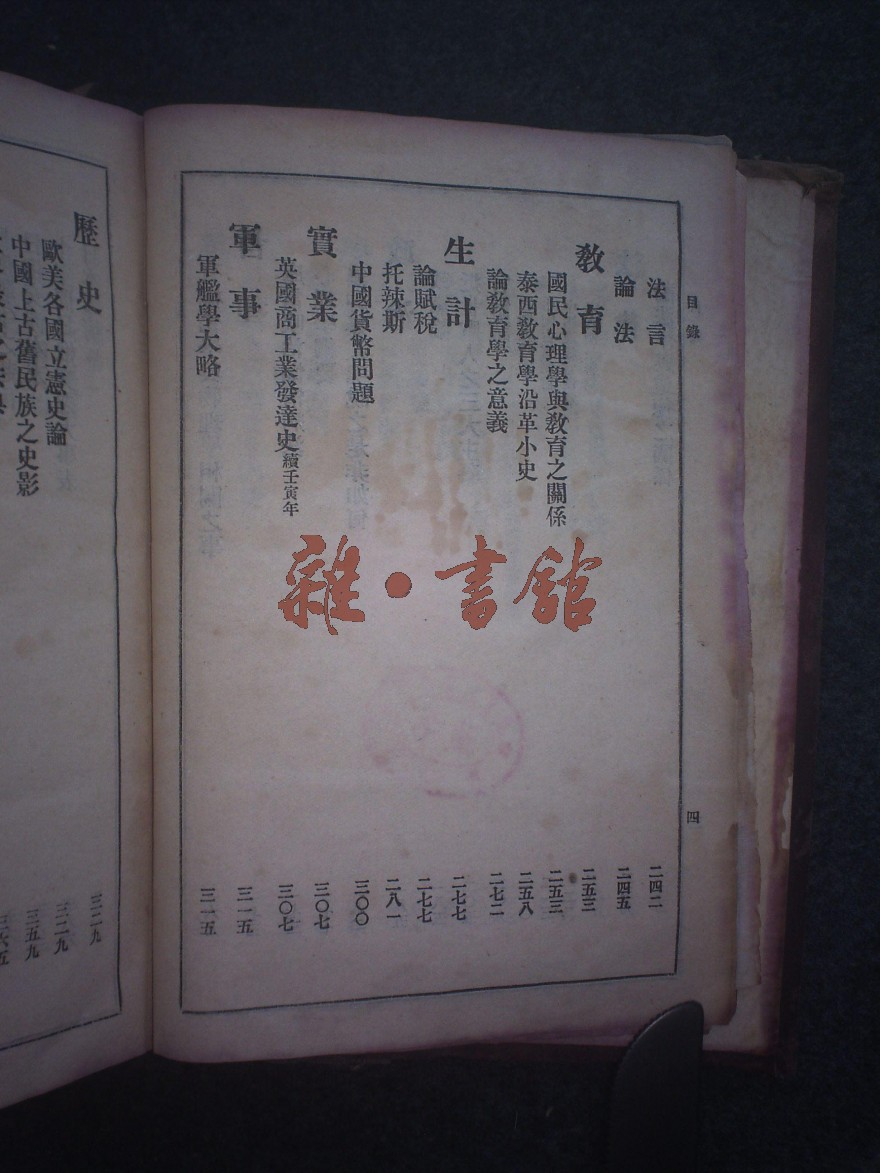 目錄
四
法言 二四二
論法 二四五
教育 二五三
國民心理學與教育之關係 二五三
泰西教育學沿革小史 二五八
論教育學之意義 二七二
生計 二七七
論賦稅 二七七
托辣斯 二八一
中國貨幣問題 三〇〇
實業 三〇七
英國商工業發達史續壬寅年 三〇七
軍事 三一五
軍艦學大略 三一五
歷史 三二九
歐美各國立憲史論 三二九
中國上古舊民族之史影 三五九
雜·書館